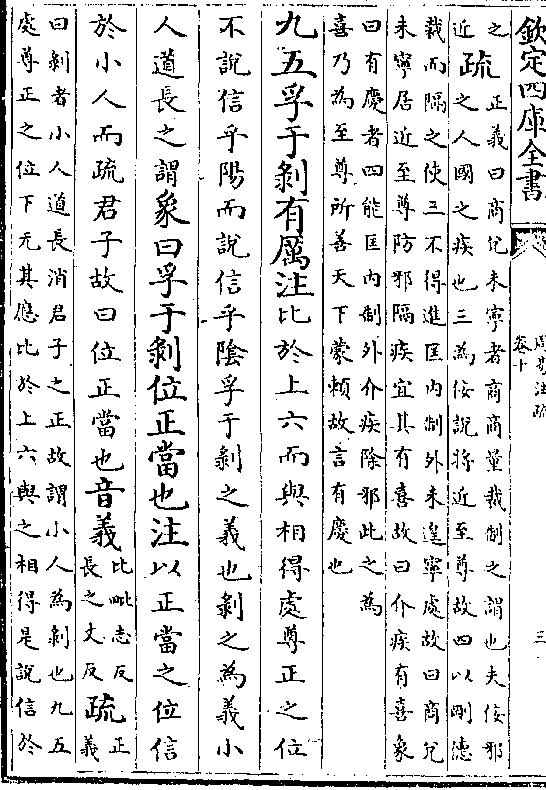 欽定四庫全書
周易注疏
卷十
三
之
近疏正義曰商兌未寧者商商量裁制之謂也夫佞邪
之人國之疾也三為佞說將近至尊故四以剛德
裁而隔之使三不得進匡内制外未遑寧處故曰商兌
未寧居近至尊防邪隔疾宜其有喜故曰介疾有喜象
曰有慶者四能匡内制外介疾除邪此之為
喜乃為至尊所善天下蒙頼故言有慶也
九五孚于剝有厲注比於上六而與相得處尊正之位
不說信乎陽而說信乎陰孚于剝之義也剝之為義小
人道長之謂象曰孚于剝位正當也注以正當之位信
於小人而疏君子故曰位正當也音義比毗志反
長之丈反疏正
義
曰剝者小人道長消君子之正故謂小人為剝也九五
處尊正之位下无其應比於上六與之相得是說信於